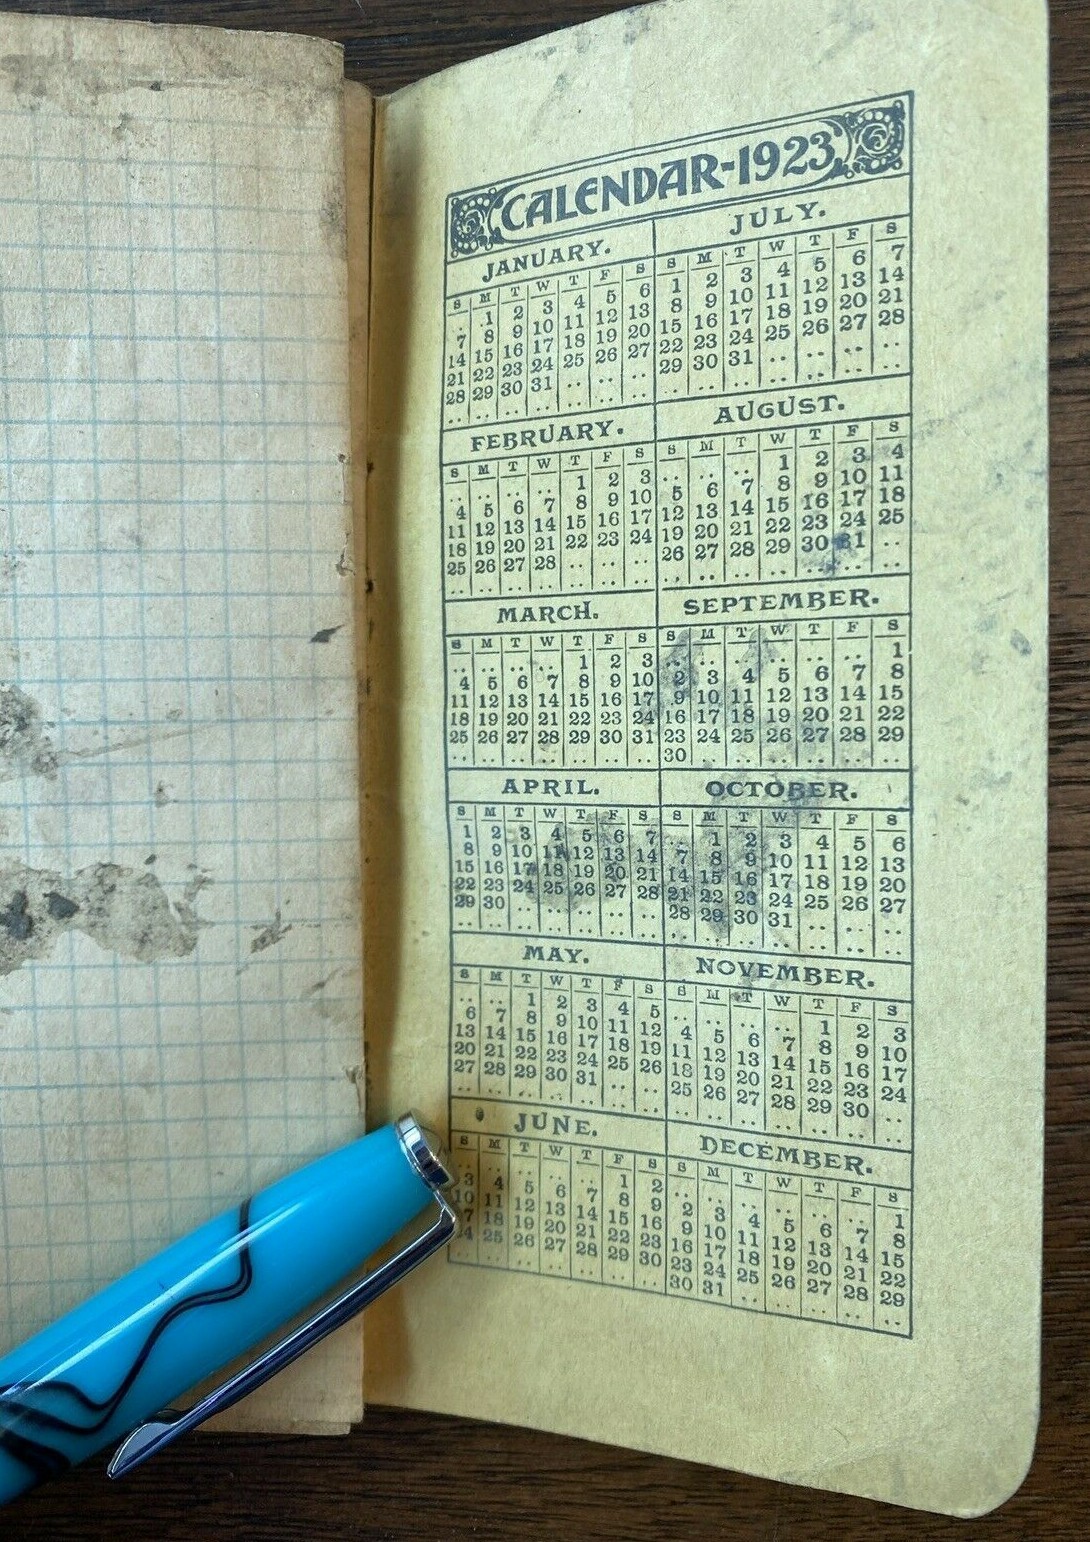 CALENDAR-1923
JANUARY.
S M T W T F S
.. 1 2 3 4 5 6
7 8 9 10 11 12 13
14 15 16 17 18 19 20
21 22 23 24 25 26 27
28 29 30 31 .. .. ..
.. .. .. .. .. .. ..
FEBRUARY.
S M T W T F S
.. .. .. .. 1 2 3
4 5 6 7 8 9 10
11 12 13 14 15 16 17
18 19 20 21 22 23 24
25 26 27 28 .. .. ..
.. .. .. .. .. .. ..
MARCH.
S M T W T F S
.. .. .. .. 1 2 3
4 5 6 7 8 9 10
11 12 13 14 15 16 17
18 19 20 21 22 23 24
25 26 27 28 29 30 31
.. .. .. .. .. .. ..
APRIL.
S M T W T F S
1 2 3 4 5 6 7
8 9 10 11 12 13 14
15 16 17 18 19 20 21
22 23 24 25 26 27 28
29 30 .. .. .. .. ..
.. .. .. .. .. .. ..
MAY.
S M T W T F S
.. .. 1 2 3 4 5
6 7 8 9 10 11 12
13 14 15 16 17 18 19
20 21 22 23 24 25 26
27 28 29 30 31 .. ..
.. .. .. .. .. .. ..
JUNE.
S M T W T F S
.. .. .. .. .. 1 2
3 4 5 6 7 8 9
10 11 12 13 14 15 16
7 18 19 20 21 22 23
4 25 26 27 28 29 30
.. .. .. .. .. .. ..
JULY.
S M T W T F S
1 2 3 4 5 6 7
8 9 10 11 12 13 14
15 16 17 18 19 20 21
22 23 24 25 26 27 28
29 30 31 .. .. .. ..
.. .. .. .. .. .. ..
AUGUST.
S M T W T F S
.. .. .. 1 2 3 4
5 6 7 8 9 10 11
12 13 14 15 16 17 18
19 20 21 22 23 24 25
26 27 28 29 30 31 ..
.. .. .. .. .. .. ..
SEPTEMBER.
S M T W T F S
.. .. .. .. .. .. 1
2 3 4 5 6 7 8
9 10 11 12 13 14 15
16 17 18 19 20 21 22
23 24 25 26 27 28 29
30 .. .. .. .. .. ..
OCTOBER.
S M T W T F S
.. 1 2 3 4 5 6
7 8 9 10 11 12 13
14 15 16 17 18 19 20
21 22 23 24 25 26 27
28 29 30 31 .. .. ..
.. .. .. .. .. .. ..
NOVEMBER.
S M T W T F S
.. .. .. .. 1 2 3
4 5 6 7 8 9 10
11 12 13 14 15 16 17
18 19 20 21 22 23 24
25 26 27 28 29 30 ..
.. .. .. .. .. .. ..
DECEMBER.
S M T W T F S
.. .. .. .. .. .. 1
2 3 4 5 6 7 8
9 10 11 12 13 14 15
16 17 18 19 20 21 22
23 24 25 26 27 28 29
30 31 .. .. .. .. ..